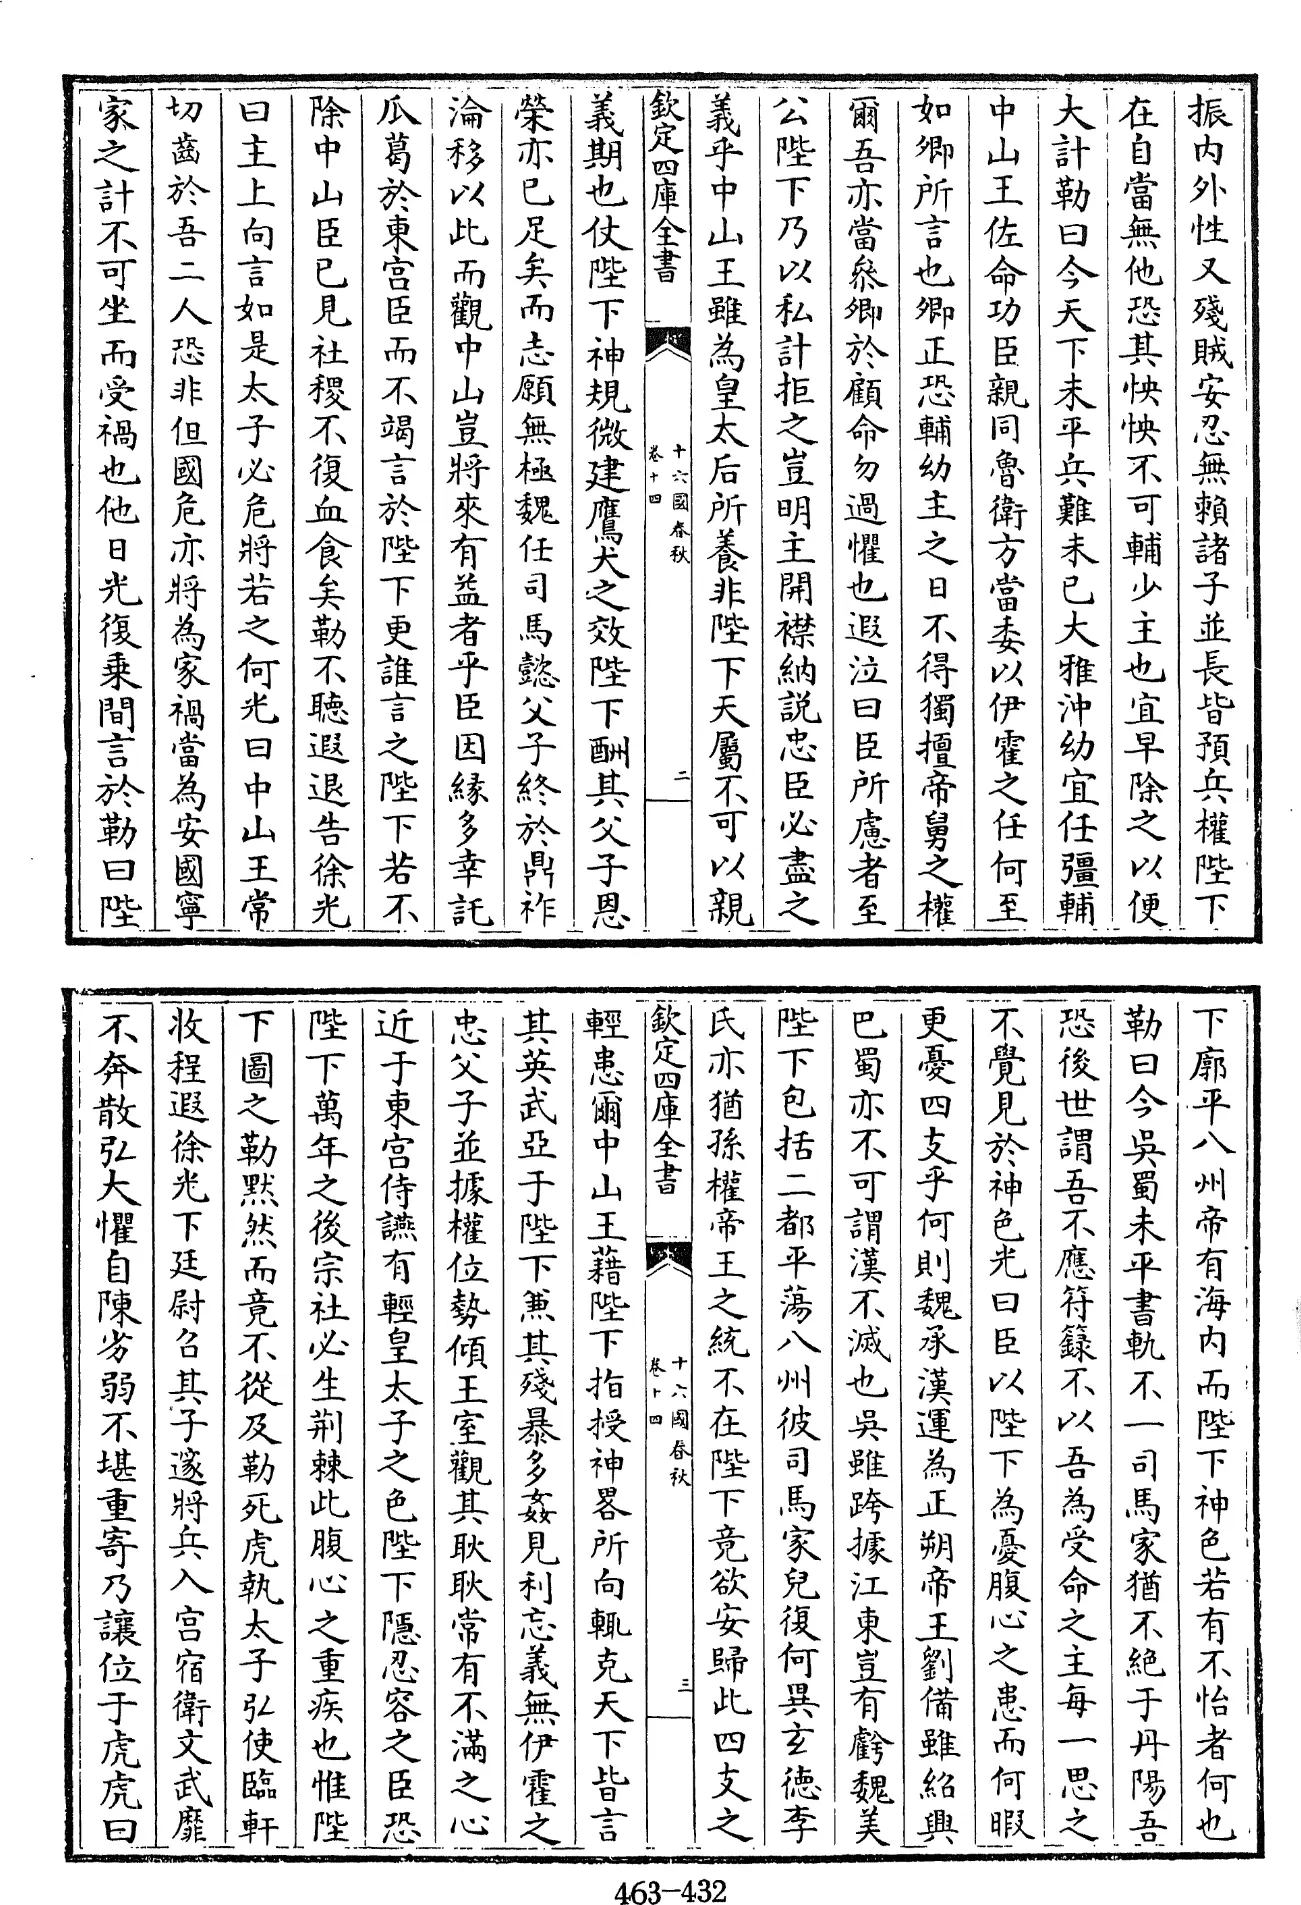 振内外性又殘賊安忍無賴諸子並長皆預兵權陛下
在自當無他恐其怏怏不可輔少主也宜早除之以便
大計勒曰今天下未平兵難未已大雅沖幼宜任彊輔
中山王佐命功臣親同魯衛方當委以伊霍之任何至
如卿所言也卿正恐輔幼主之日不得獨擅帝舅之權
爾吾亦當叅卿於顧命勿過懼也遐泣曰臣所慮者至
公陛下乃以私計拒之豈明主開襟納説忠臣必盡之
義乎中山王雖為皇太后所養非陛下天屬不可以親
欽定四庫全書
十六國春秋
卷十四
二
義期也仗陛下神規微建鷹犬之效陛下酬其父子恩
榮亦已足矣而志願無極魏任司馬懿父子終於鼎祚
淪移以此而觀中山豈將來有益者乎臣因緣多幸託
瓜葛於東宮臣而不竭言於陛下更誰言之陛下若不
除中山臣已見社稷不復血食矣勒不聽遐退告徐光
曰主上向言如是太子必危將若之何光曰中山王常
切齒於吾二人恐非但國危亦將為家禍當為安國寧
家之計不可坐而受禍也他日光復乗間言於勒曰陛
下廓平八州帝有海内而陛下神色若有不怡者何也
勒曰今吳蜀未平書軌不一司馬家猶不絶于丹陽吾
恐後世謂吾不應符籙不以吾為受命之主每一思之
不覺見於神色光曰臣以陛下為憂腹心之患而何暇
更憂四支乎何則魏承漢運為正朔帝王劉備雖紹興
巴蜀亦不可謂漢不滅也吳雖跨據江東豈有虧魏美
陛下包括二都平蕩八州彼司馬家兒復何異玄德李
氏亦猶孫權帝王之統不在陛下竟欲安歸此四支之
欽定四庫全書
十六國春秋
卷十四
三
輕患爾中山王藉陛下指授神畧所向輒克天下皆言
其英武亞于陛下兼其殘暴多姦見利忘義無伊霍之
忠父子並據權位勢傾王室觀其耿耿常有不滿之心
近于東宮侍讌有輕皇太子之色陛下隱忍容之臣恐
陛下萬年之後宗社必生荆棘此腹心之重疾也惟陛
下圖之勒黙然而竟不從及勒死虎執太子弘使臨軒
收程遐徐光下廷尉召其子邃將兵入宮宿衛文武靡
不奔散弘大懼自陳劣弱不堪重寄乃讓位于虎虎曰
463-432